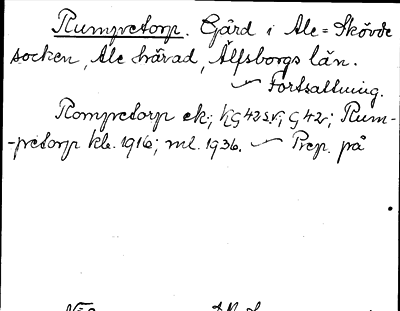 Rumpretorp. Gård i Ale-Skövde
socken, Ale härad, Älfsborgs län.
— Fortsättning.
Rompretorp ek; KG 42 s. v; G 42 v; Rum-
-pretorp kb. 1916; ml. 1936. — Prep. på